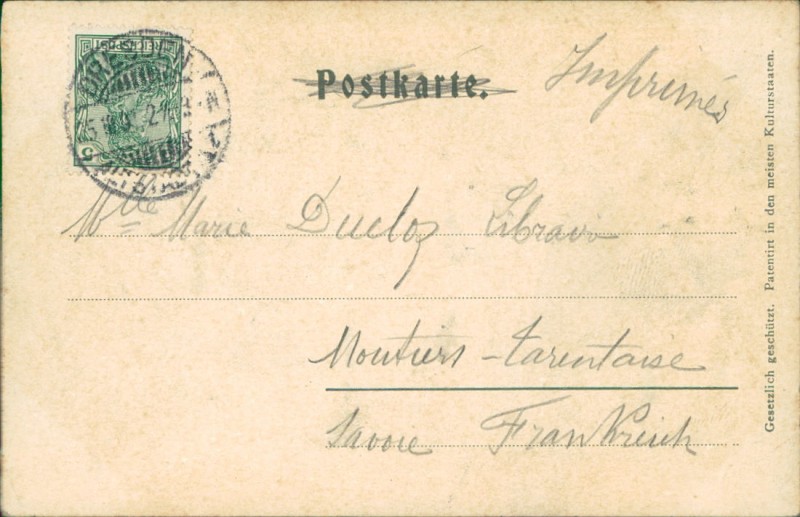 REICHSPOST
5
DRESDEN
ALTSTADT
Postkarte.
Imprimés
Mlle Marie Ducloz Libraire
Moutiers-tarentaise
Savoie Frankreich
Gesetzlich geschützt. Patentirt in den meisten Kulturstaaten.